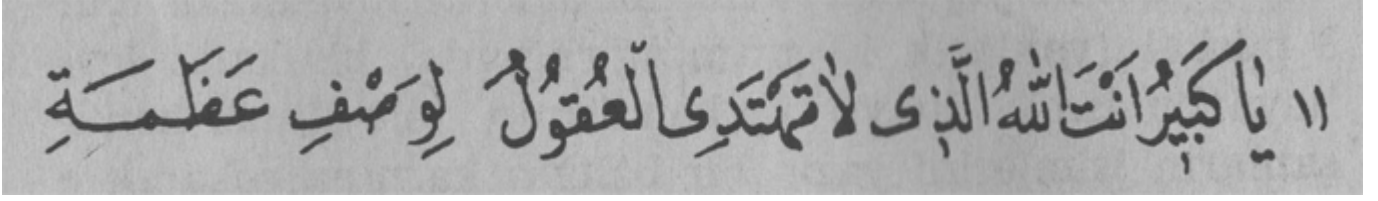 ١١ يٰا كَبِيرُ اَنْتَ اللّٰهُ الَّذِى لٰا تَهْتَدِى الْعُقُولُ لِوَصْفِ عَظَمَةِ